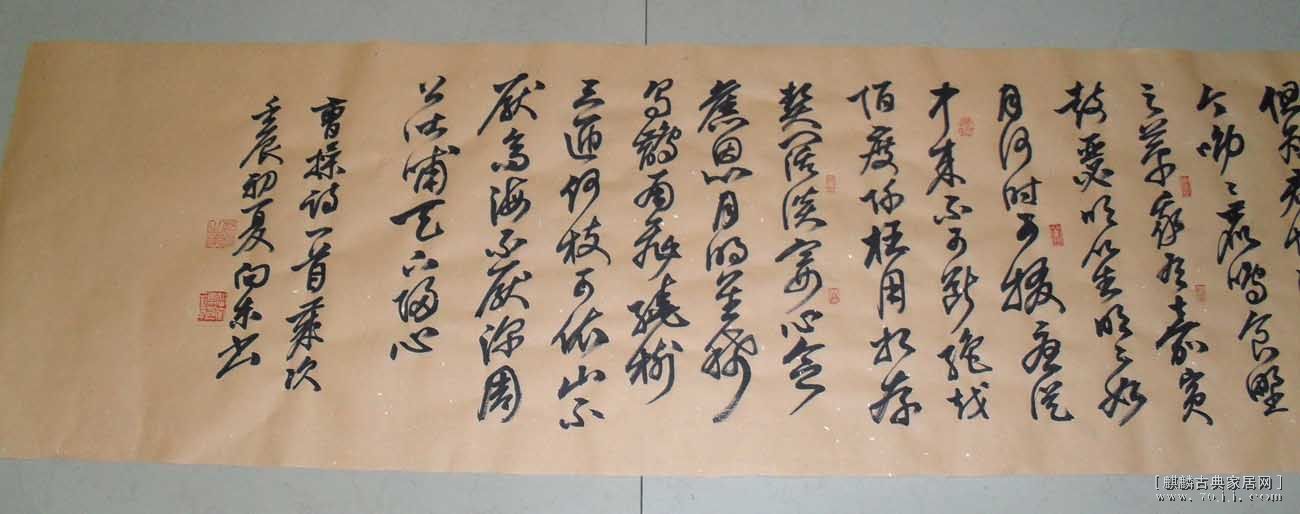 但为君
吟呦々鹿鸣食野
之苹我有嘉宾
鼓瑟吹笙明々如
月何时可掇忧从
中来不可断绝越
陌度阡枉用相存
契阔谈宴心念
旧恩月明星稀
乌鹊南飞绕树
三匝何枝可依山不
厌高海不厌深周
公吐哺天下归心
曹操诗一首岁次
壬辰初夏向东书
[麒麟古典家居网]
www.70jj.com